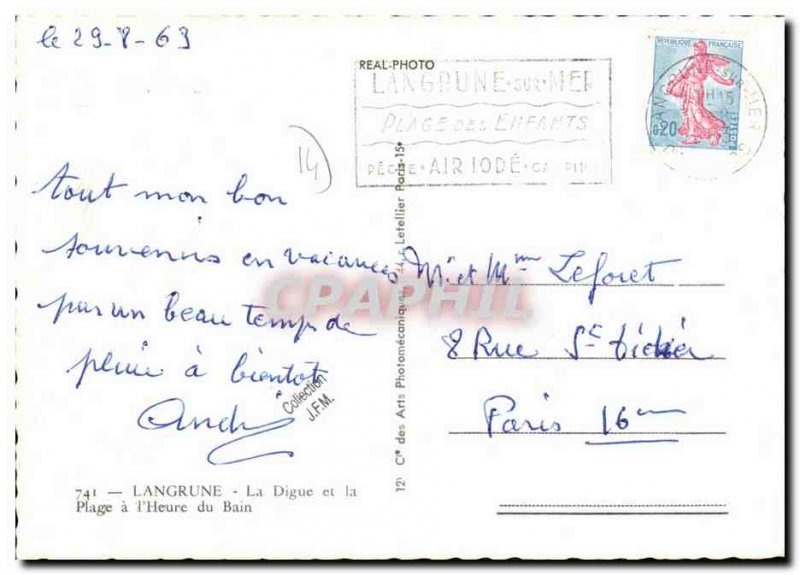 le 29-8-63
REAL-PHOTO
LANGRUNE-SUR-MER
PLAGE DES ENFANTS
PÊCHE · AIR IODÉ ·
REPUBLIQUE FRANÇAISE
0,20
POSTES
14
tout mon bon
souvenirs en vacances
par un beau temps de
pluie à bientôt
André
Collection
J.F.M.
M. et Mme Leforet
8 Rue St Didier
Paris 16em
Cie des Arts Photomécaniques, 44, r. Letellier Paris-15e
CPAPHIL
741 — LANGRUNE - La Digue et la
Plage à l'Heure du Bain